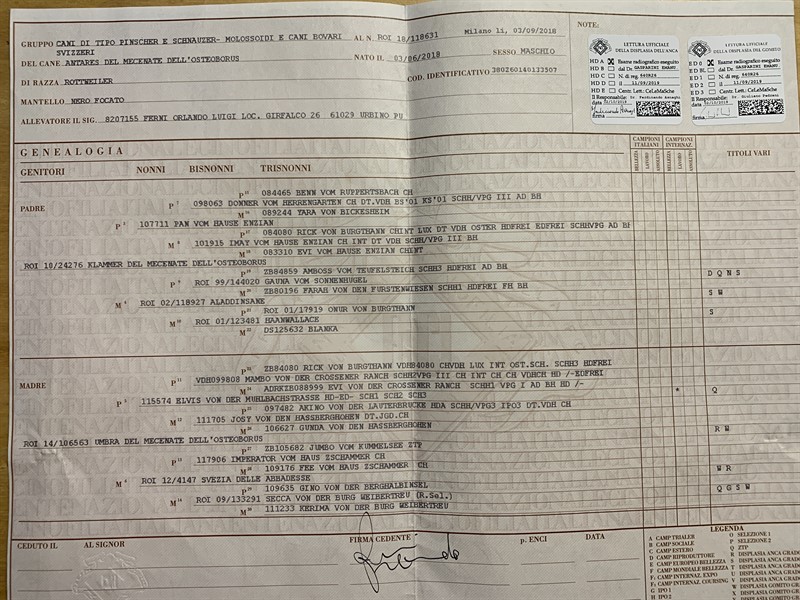 GRUPPO CANI DI TIPO PINSCHER E SCHNAUZER- MOLOSSOIDI E CANI BOVARI SVIZZERI
AL N. ROI 18/118631
Milano li, 03/09/2018
DEL CANE ANTARES DEL MECENATE DELL'OSTEOBORUS
NATO IL 03/06/2018
SESSO MASCHIO
DI RAZZA ROTTWEILER
COD. IDENTIFICATIVO 380260140123507
MANTELLO NERO FOCATO
ALLEVATORE IL SIG. 8207155 FERNI ORLANDO LUIGI LOC. GIRFALCO 26 61029 URBINO PU
NOTE:
LETTURA UFFICIALE
DELLA DISPLASIA DELL'ANCA
HD A Esame radiografico eseguito
HD B dal Dr. GASPARINI EMANU.
HD C N. di reg.
HD D il 11/09/2018
HD E Centr. Lett.: CeLeMaSche
Il Responsabile:
data
firma
LETTURA UFFICIALE
DELLA DISPLASIA DEL GOMITO
ED 0 Esame radiografico eseguito
ED BL dal Dr. GASPARINI EMANU.
ED 1 N. di reg.
ED 2 il 11/09/2018
ED 3 Centr. Lett.: CeLeMaSche
Il Responsabile:
data
firma
GENEALOGIA
CAMPIONI ITALIANI
CAMPIONI INTERNAZ.
BELLEZZA
LAVORO
ASSOLUTO
BELLEZZA
LAVORO
ASSOLUTO
TITOLI VARI
GENITORI NONNI BISNONNI TRISNONNI
084465 BENN VOM RUPPERTSBACH CH
PADRE
098063 DONNER VOM HERRENGARTEN CH DT.VDH BS'01 KS'01 SCHH/VPG III AD BH
089244 YARA VON BICKESHEIM
107711 PAN VOM HAUSE ENZIAN
084080 RICK VON BURGTHANN CHINT LUX DT VDH OSTER HDFREI EDFREI SCHHVPG AD BH
101915 IMAY VOM HAUSE ENZIAN CH INT DT VDH SCHH/VPG III BH
083310 EVI VOM HAUSE ENZIAN CHINT
ROI 10/24276 KLAMMER DEL MECENATE DELL'OSTEOBORUS
ZB84859 AMBOSS VOM TEUFELSTEICH SCHH3 HDFREI AD BH
D Q N S
ROI 99/144020 GAUNA VOM SONNENHUGEL
ZB80196 FARAH VON DEN FURSTENWIESEN SCHH1 HDFREI FH BH
S W
ROI 02/118927 ALADDINSANE
ROI 01/17919 ONUR VON BURGTHANN
S
ROI 01/123481 HAANWALLACE
DS125632 BLANKA
MADRE
ZB84080 RICK VON BURGTHANN VDH84080 CHVDH LUX INT OST.SCH. SCHH3 HDFREI
VDH099808 MAMBO VON DER CROSSENER RANCH SCHH2VPG III CH INT CH CH VDHCH HD /-EDFREI
ADRKZB088999 EVI VON DER CROSSENER RANCH SCHH1 VPG I AD BH HD /-
* Q
115574 ELVIS VON DER MUHLBACHSTRASSE HD-ED- SCH1 SCH2 SCH3
097482 AKINO VON DER LAUTERBRUCKE HDA SCHH/VPG3 IPO3 DT.VDH CH
111705 JOSY VON DER HASSBERGHOHEN DT.JGD.CH
106627 GUNDA VON DEN HASSBERGHOHEN
R W
ROI 14/106563 UMBRA DEL MECENATE DELL'OSTEOBORUS
ZB105682 JUMBO VOM KUMMELSEE ZTP
117906 IMPERATOR VOM HAUS ZSCHAMMER CH
109176 FEE VOM HAUS ZSCHAMMER CH
W R
ROI 12/4147 SVEZIA DELLE ABBADESSE
109635 GINO VON DER BERGHALBINSEL
Q G S W
ROI 09/133291 SECCA VON DER BURG WEIBERTREU (R.Sel.)
111233 KERIMA VON DER BURG WEIBERTREU
CEDUTO IL AL SIGNOR FIRMA CEDENTE p. ENCI DATA
LEGENDA
A CAMP TRIALER
B CAMP SOCIALE
C CAMP ESTERO
D CAMP RIPRODUTTORE
E CAMP EUROPEO BELLEZZA
F CAMP MONDIALE BELLEZZA
F1 CAMP INTERNAZ. EXPO
F2 CAMP INTERNAZ. COURSING
G IPO 1
H IPO 2
O SELEZIONE 1
P SELEZIONE 2
Q ZTP
R DISPLASIA ANCA GRADO
S DISPLASIA ANCA GRADO